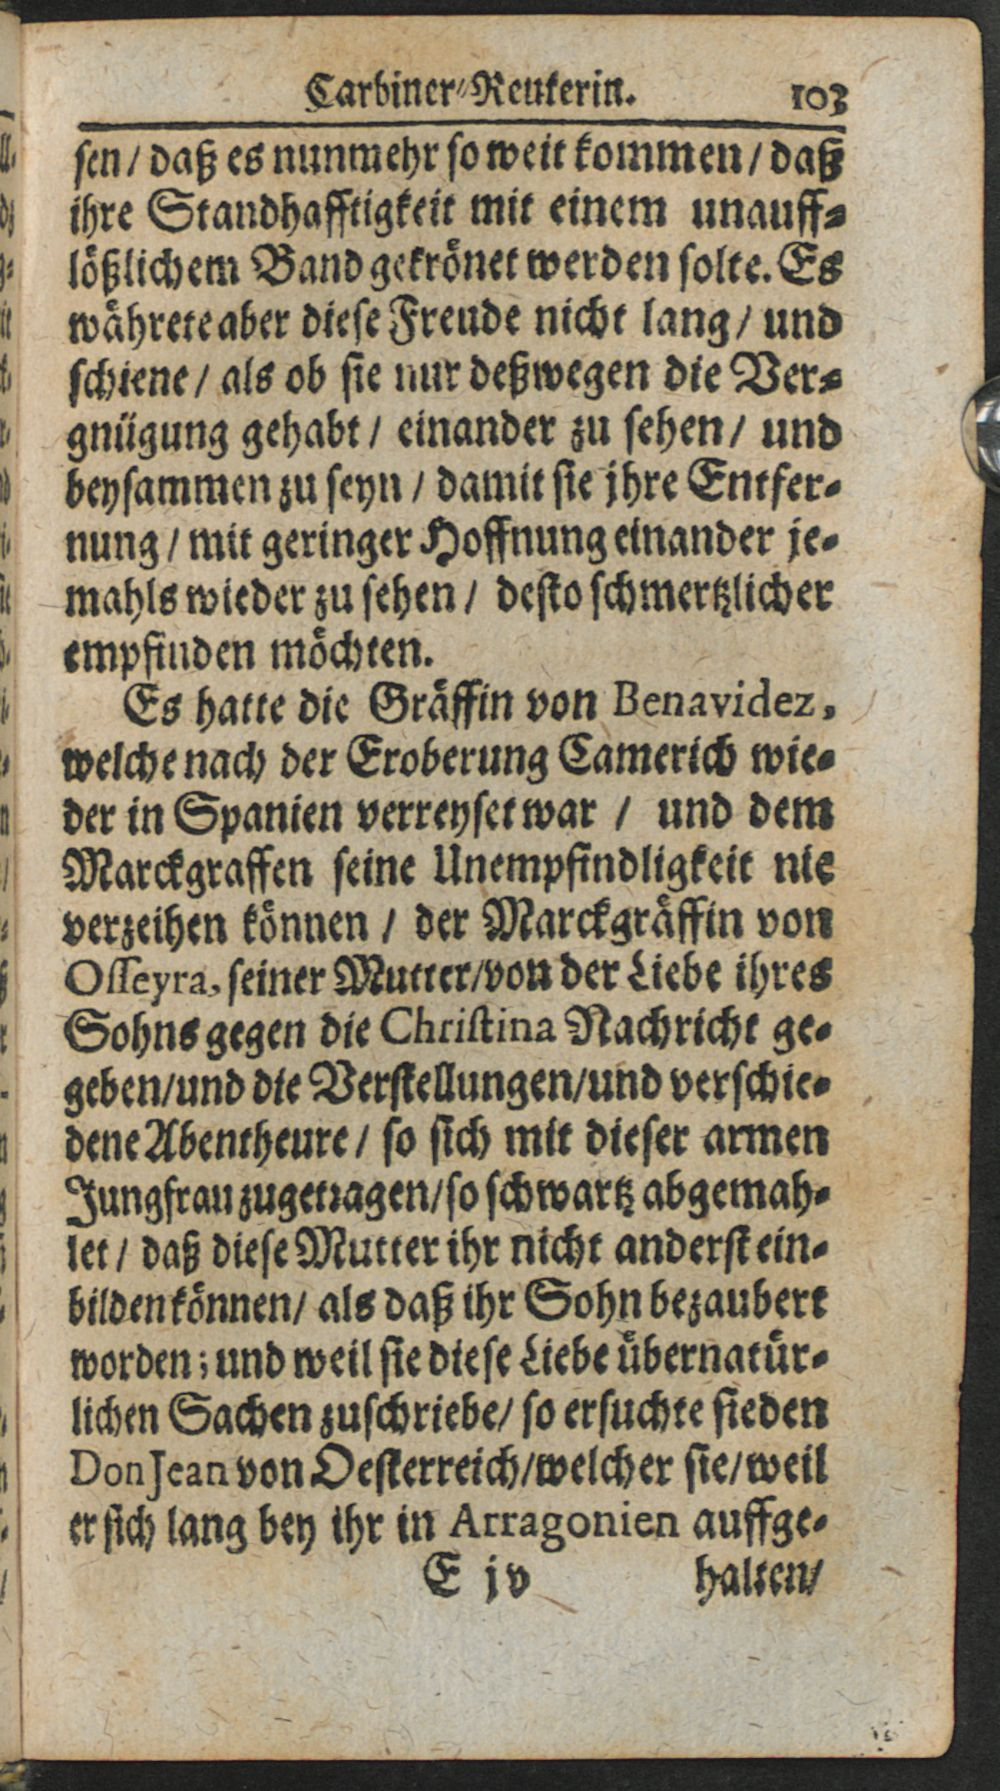 Carbiner-Reuterin. 103
sen / daß es nunmehr so weit kommen / daß
ihre Standhafftigkeit mit einem unauff-
lößlichem Band gekrönet werden solte. Es
währete aber diese Freude nicht lang / und
schiene / als ob sie nur deßwegen die Ver-
gnügung gehabt / einander zu sehen / und
beysammen zu seyn / damit sie jhre Entfer-
nung / mit geringer Hoffnung einander je-
mahls wieder zu sehen / desto schmertzlicher
empfinden möchten.
Es hatte die Gräffin von Benavidez,
welche nach der Eroberung Camerich wie-
der in Spanien verreyset war / und dem
Marckgraffen seine Unempfindligkeit nie
verzeihen können / der Marckgräffin von
Osseyra, seiner Mutter / von der Liebe ihres
Sohns gegen die Christina Nachricht ge-
geben / und die Verstellungen / und verschie-
dene Abentheure / so sich mit dieser armen
Jungfrau zugetragen / so schwartz abgemah-
let / daß diese Mutter ihr nicht anderst ein-
bilden können / als daß ihr Sohn bezaubert
worden; und weil sie diese Liebe übernatür-
lichen Sachen zuschriebe / so ersuchte sie den
Don Jean von Oesterreich / welcher sie / weil
er sich lang bey ihr in Arragonien auffge-
E jv halten /